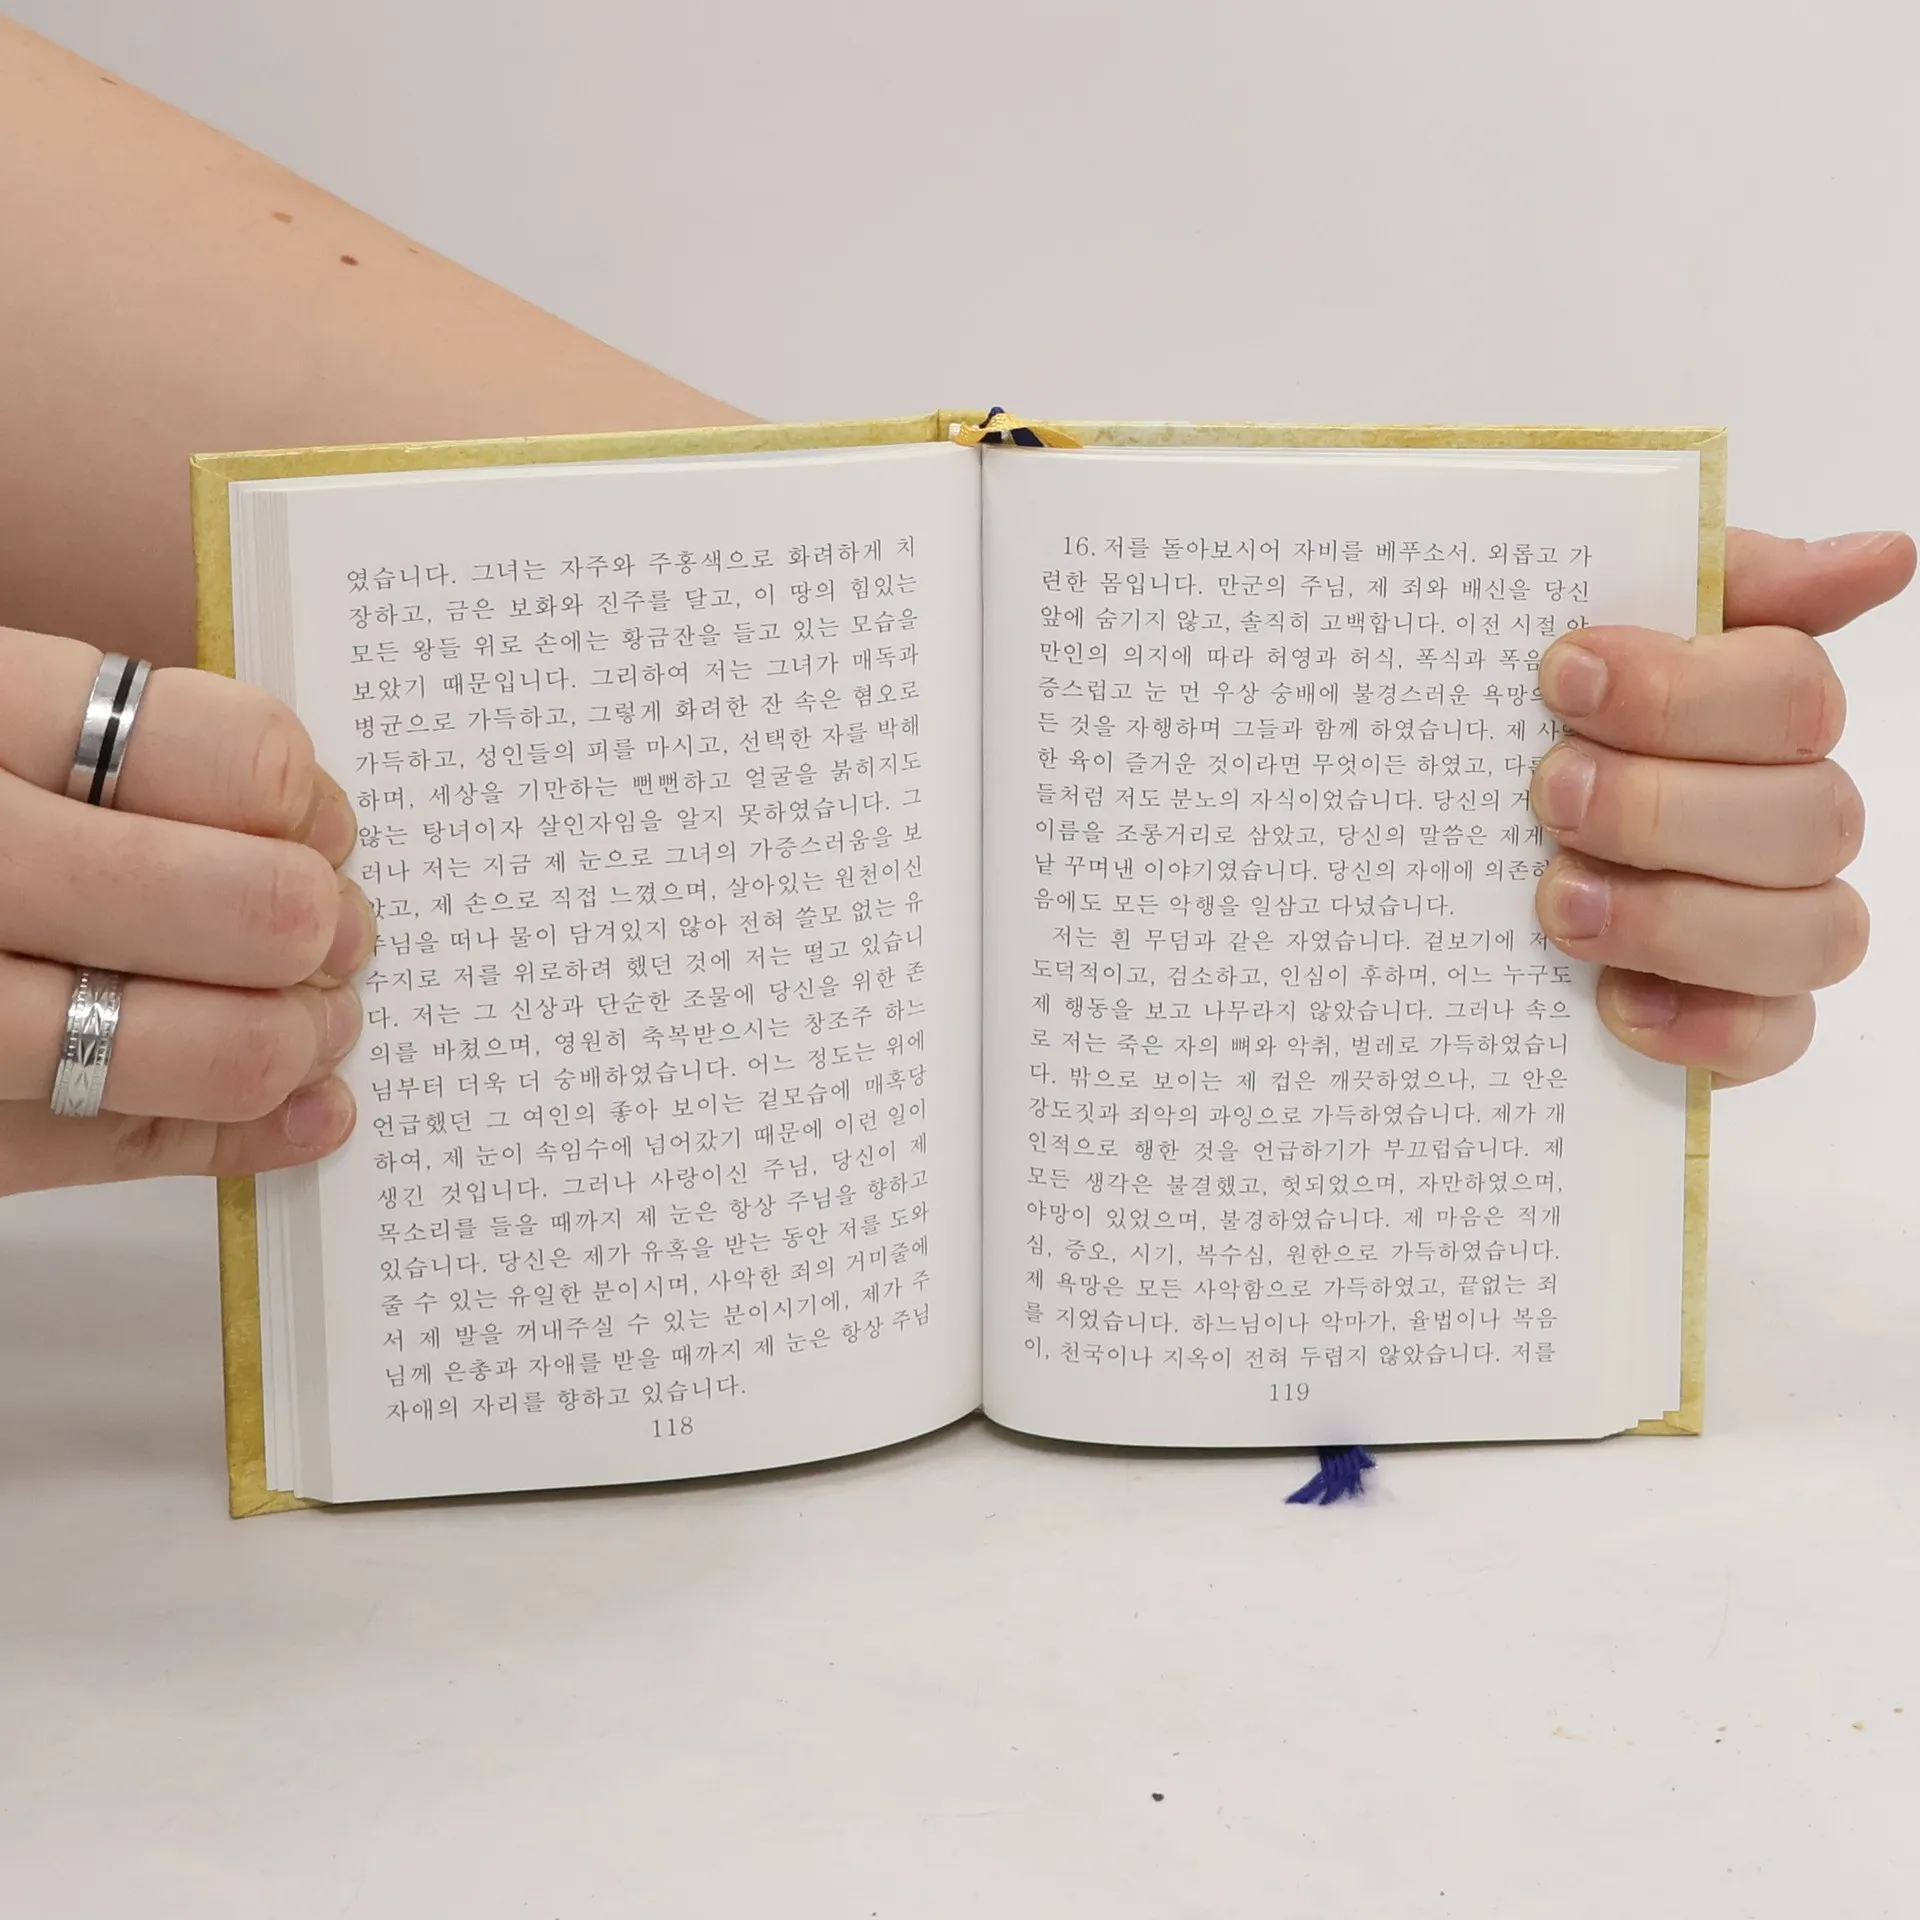 였습니다. 그녀는 자주와 주홍색으로 화려하게 치
장하고, 금은 보화와 진주를 달고, 이 땅의 힘있는
모든 왕들 위로 손에는 황금잔을 들고 있는 모습을
보았기 때문입니다. 그리하여 저는 그녀가 매독과
병균으로 가득하고, 그렇게 화려한 잔 속은 혐오로
가득하고, 성인들의 피를 마시고, 선택한 자를 박해
하며, 세상을 기만하는 뻔뻔하고 얼굴을 붉히지도
않는 탕녀이자 살인자임을 알지 못하였습니다. 그
러나 저는 지금 제 눈으로 그녀의 가증스러움을 보
았고, 제 손으로 직접 느꼈으며, 살아있는 원천이신
주님을 떠나 물이 담겨있지 않아 전혀 쓸모 없는 유
수지로 저를 위로하려 했던 것에 저는 떨고 있습니
다. 저는 그 신상과 단순한 조물에 당신을 위한 존
의를 바쳤으며, 영원히 축복받으시는 창조주 하느
님부터 더욱 더 숭배하였습니다. 어느 정도는 위에
언급했던 그 여인의 좋아 보이는 겉모습에 매혹당
하여, 제 눈이 속임수에 넘어갔기 때문에 이런 일이
생긴 것입니다. 그러나 사랑이신 주님, 당신이 제
목소리를 들을 때까지 제 눈은 항상 주님을 향하고
있습니다. 당신은 제가 유혹을 받는 동안 저를 도와
줄 수 있는 유일한 분이시며, 사악한 죄의 거미줄에
서 제 발을 꺼내주실 수 있는 분이시기에, 제가 주
님께 은총과 자애를 받을 때까지 제 눈은 항상 주님
자애의 자리를 향하고 있습니다.
118
16. 저를 돌아보시어 자비를 베푸소서. 외롭고 가
련한 몸입니다. 만군의 주님, 제 죄와 배신을 당신
앞에 숨기지 않고, 솔직히 고백합니다. 이전 시절
만인의 의지에 따라 허영과 허식, 폭식과
증스럽고 눈 먼 우상 숭배에 불경스러운
든 것을 자행하며 그들과 함께 하였습니다. 제
한 육이 즐거운 것이라면 무엇이든 하였고,
들처럼 저도 분노의 자식이었습니다. 당신의
이름을 조롱거리로 삼았고, 당신의 말씀은
낱 꾸며낸 이야기였습니다. 당신의 자애에
음에도 모든 악행을 일삼고 다녔습니다.
저는 흰 무덤과 같은 자였습니다. 겉보기에
도덕적이고, 검소하고, 인심이 후하며, 어느 누구도
제 행동을 보고 나무라지 않았습니다. 그러나 속으
로 저는 죽은 자의 뼈와 악취, 벌레로 가득하였습니
다. 밖으로 보이는 제 컵은 깨끗하였으나, 그 안은
강도짓과 죄악의 과잉으로 가득하였습니다. 제가 개
인적으로 행한 것을 언급하기가 부끄럽습니다. 제
모든 생각은 불결했고, 헛되었으며, 자만하였으며,
야망이 있었으며, 불경하였습니다. 제 마음은 적개
심, 증오, 시기, 복수심, 원한으로 가득하였습니다.
제 욕망은 모든 사악함으로 가득하였고, 끝없는 죄
를 지었습니다. 하느님이나 악마가, 율법이나 복음
이, 천국이나 지옥이 전혀 두렵지 않았습니다. 저를
119